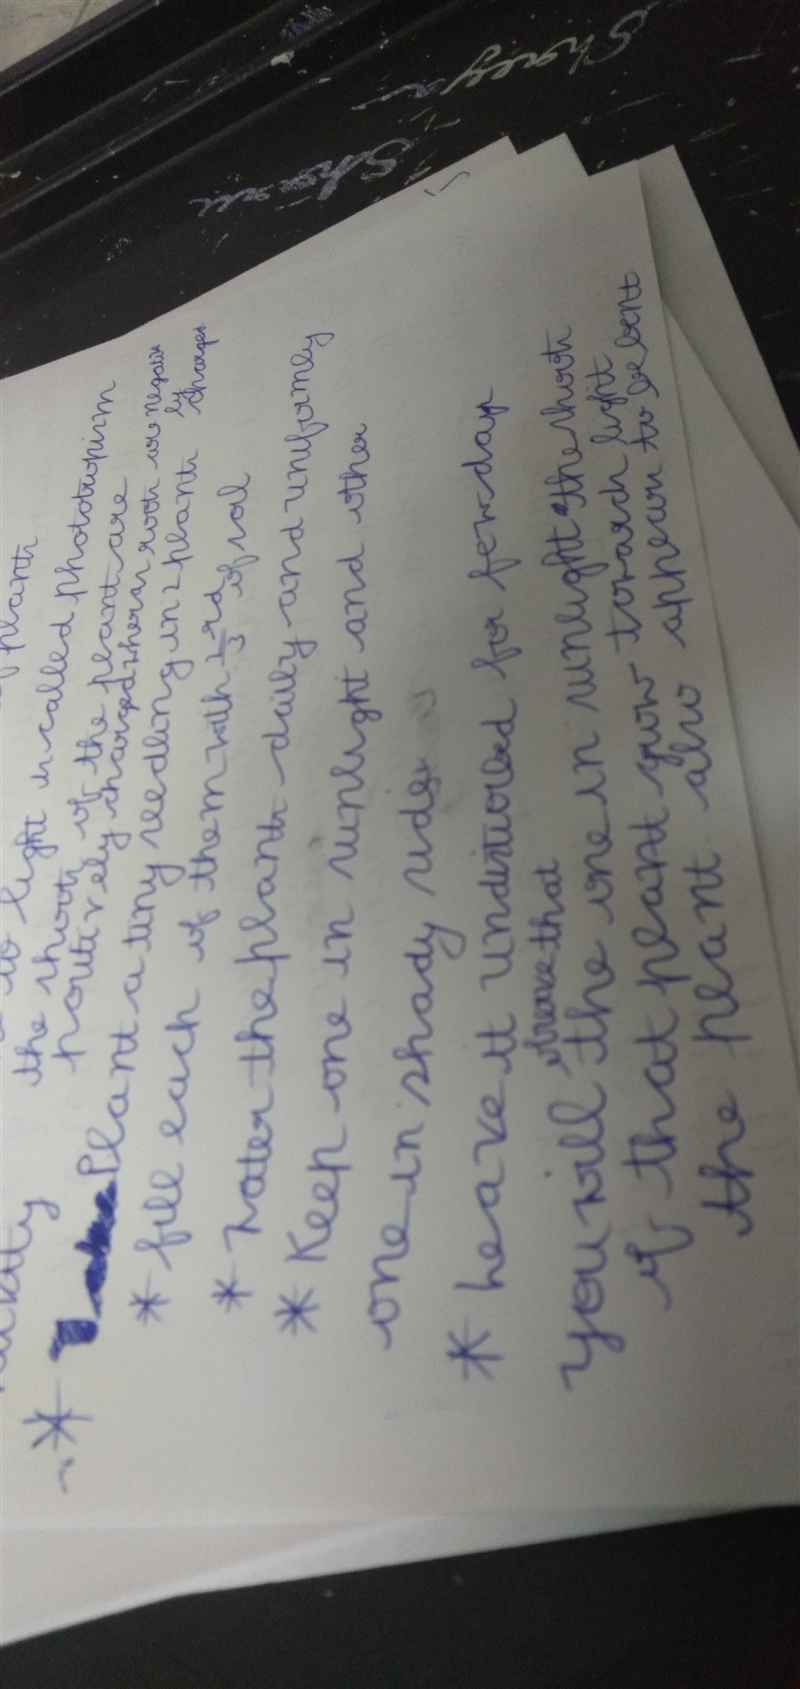 plants
to light is called phototropism
the shoots of the plant are
positively charged whereas roots are negatively charged
* Plant a tiny seedling in 2 plants
* fill each of them with 1/3 rd of soil
* Water the plants daily and uniformly
* Keep one in sunlight and other
one in shady side
* Leave it undisturbed for few days
you will observe that the one in sunlight the shoots
of that plant grow towards light
the plant also appears to be bent
Shreya